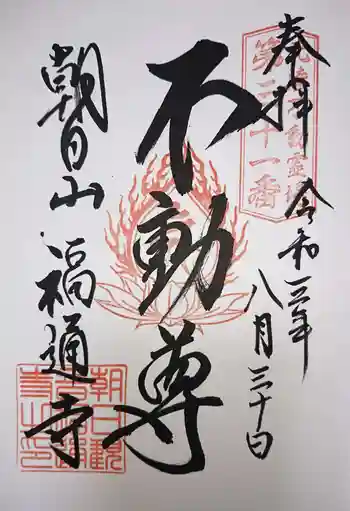 奉拝
第三十一番
令和三年
八月三十日
不動尊
朝日山 福通寺